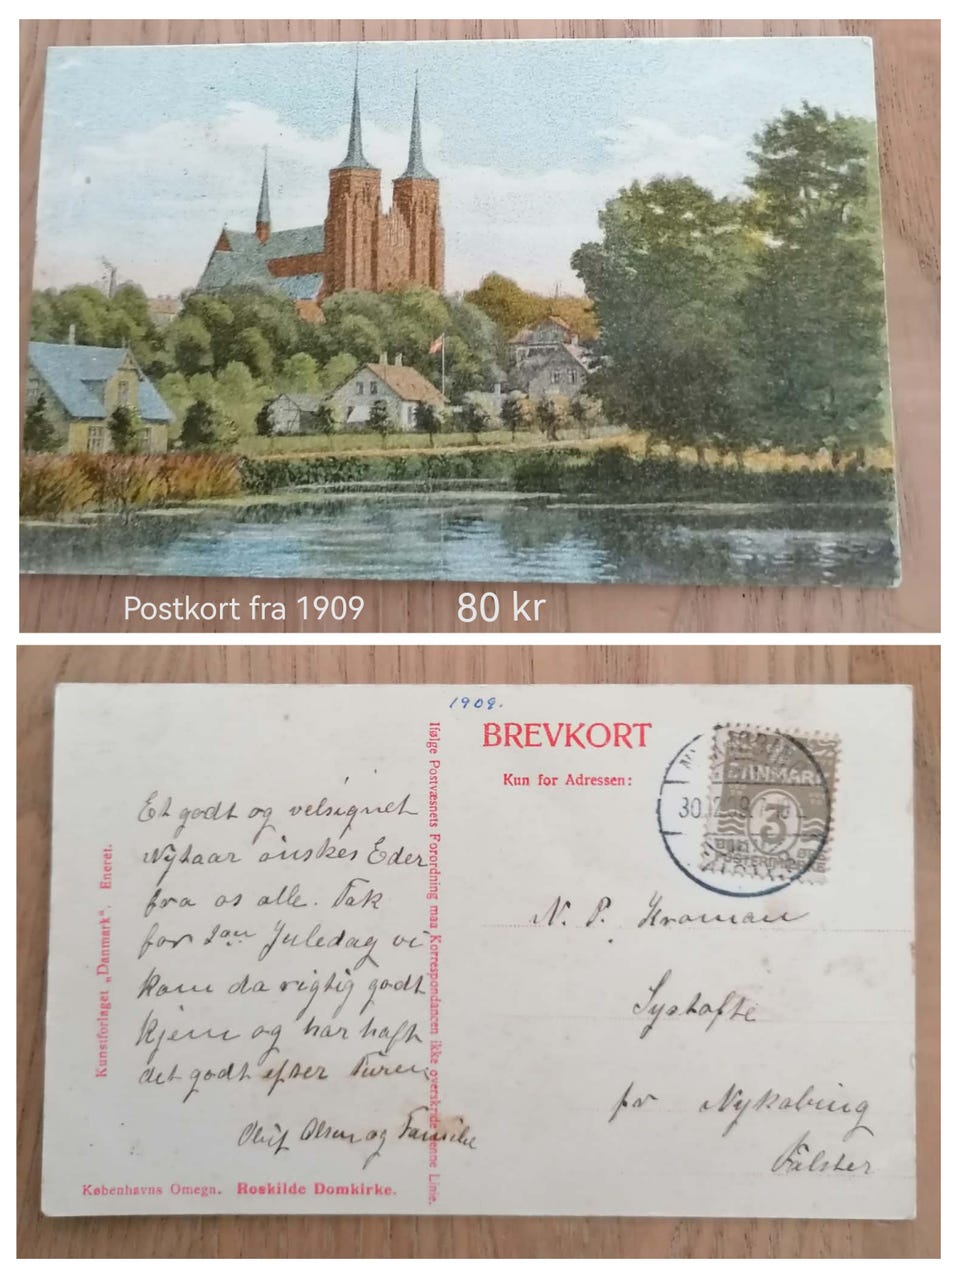 Postkort fra 1909 80 kr
1909.
BREVKORT
Kun for Adressen:
Ifølge Postvæsnets Forordning maa Korrespondancen ikke overskride denne Linie.
Kunstforlaget „Danmark". Eneret.
Et godt og velsignet
Nytaar ønskes Eder
fra os alle. Tak
for 2den Juledag vi
kom da rigtig godt
hjem og har haft
det godt efter Turen
Oluf Olsen og Familie
Københavns Omegn. Roskilde Domkirke.
30.12.09
DANMARK
3
N. P. Kroman
Systofte
pr Nykøbing
Falster